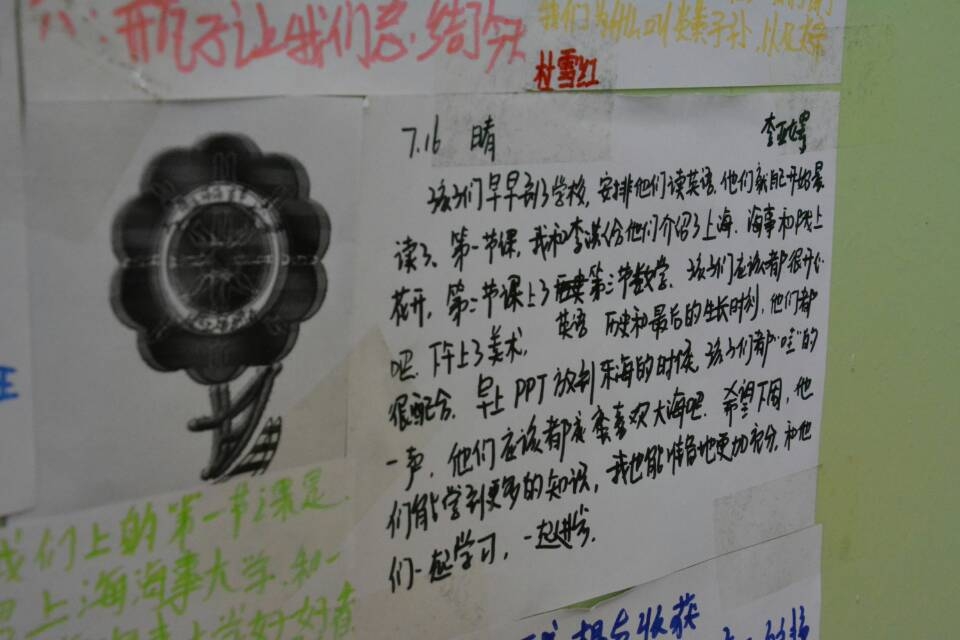 开仓了让我们总结今天
我们为什么叫炎黄子孙,以及大禹
杜雪红
7.16 晴
李亚婷
孩子们早早到了学校,安排他们读英语,他们就自己开始晨
读了、第一节课,我和李淇给他们介绍了上海、海事和陇上
花开,第二节课上了第三节数学、孩子们应该都很开心
吧、下午上了美术, 英语 历史和最后的生长时刻,他们都
很配合、早上PPT放到东海的时候,孩子们都"哇"的
一声,他们应该都蛮喜欢大海吧、希望下周,他
们能学到更多的知识,我也能准备地更加充分,和他
们一起学习,一起进步、
我们上的第一节课是
上海海事大学,和一
想与收获